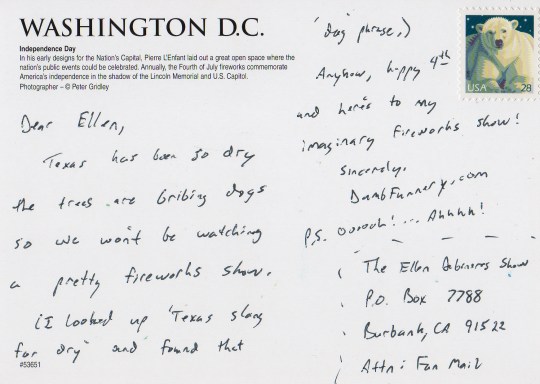 WASHINGTON D.C.
Independence Day
In his early designs for the Nation's Capital, Pierre L'Enfant laid out a great open space where the
nation's public events could be celebrated. Annually, the Fourth of July fireworks commemorate
America's independence in the shadow of the Lincoln Memorial and U.S. Capitol.
Photographer – © Peter Gridley
Dear Ellen,
Texas has been so dry
the trees are bribing dogs
so we won't be watching
a pretty fireworks show.
(I looked up 'Texas slang
for dry' and found that
#53651
'dog phrase.)
Anyhow, happy 4th
and here's to my
imaginary fireworks show!
Sincerely,
DumbFunnery.com
P.S. Ooooh! ... Ahhhh!
USA 28
The Ellen DeGeneres Show
P.O. Box 7788
Burbank, CA 91522
Attn: Fan Mail